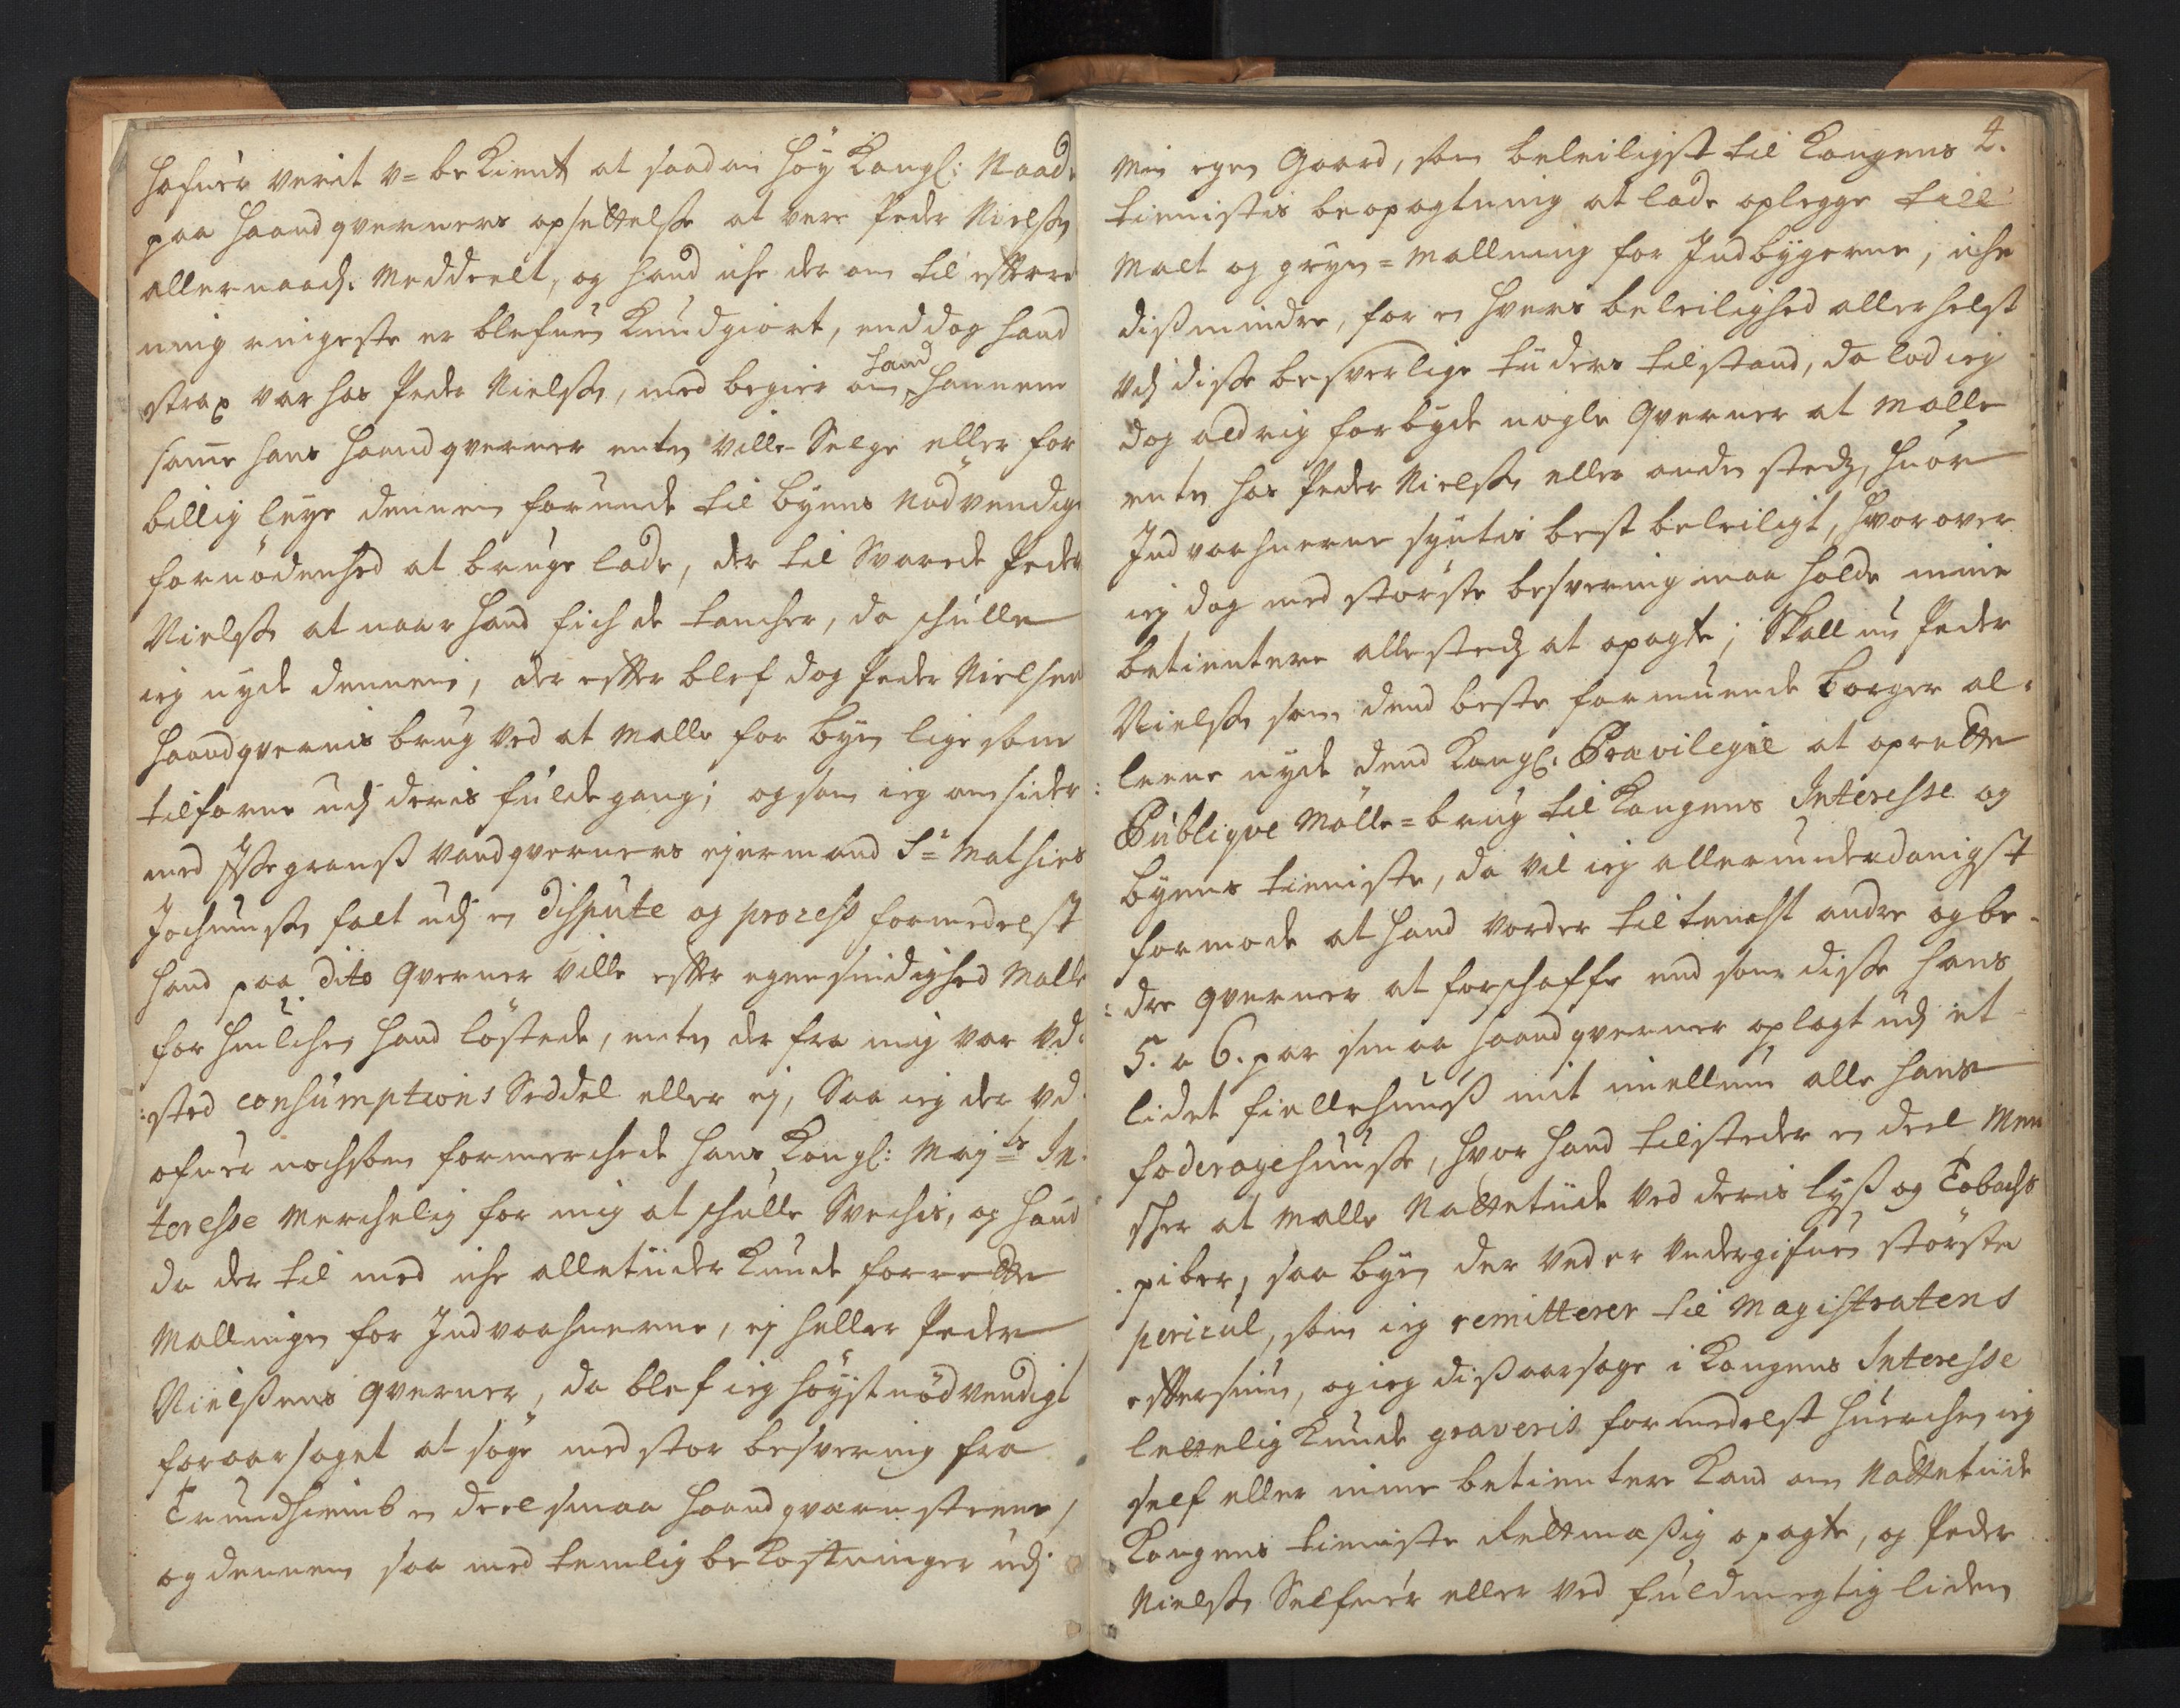 hafuer verit u=bekient at saadan höy Kongl: Naade
paa Haandqverners opsettelsse at vere Peder Nielsen
allernaad: Meddeelt, og hand iche der om til effterret
ning ringeste er blefuen Kundgiort, end dog hand
strax var hos Peder Nielssen, med begier om hand hannem
samme hans Haandqverner enten ville Selge eller for
billig leye dennem forunde til byens nödvendige
fornödenhed at bruge lade, der til Svarede Peder
Nielssen at naar hand fich de tancher, da schulle
ieg nyde dennem, der effter blef dog Peder Nielsens
Haandqvernis brug ved at Malle for byen lige som
tilforne udj deris fulde gang; og som ieg omsider
med vandqverners eyermand Sr Mathies
Jochumsen falt udj en Dispute og process formedelst
hand paa dito Qverner ville effter egensindighed Malle
for huilchen hand löstede, enten der fra mig var ud-
:sted Consumptions Seddel eller ej, Saa ieg der ud-
ofuer nochsom formerchede hans Kongl: Majts In-
teresse Merchelig for mig at schulle Svechis, og hand
da der til med iche alletiider Kunde forrette
Mallingen for Indvaahnerne, ej heller Peder
Nielssens Qverner, da blef ieg höyst nödvendigt
foraarsaget at söge med stor besvering fra
Trundhiemb en deel smaa Haandqvarn steene,
og dennem saa med temlig bekostninger udj
2.
Min egen Gaard, som beleiligst til Kongens
tienistis beopagtning at lade oplegge till
Malt og gryn=Mallning for Indbygerne, iche
dissmindre, for en hvers beleilighed allerhelst
udj disse besverlige tiiders tilstand, da lod ieg
dog aldrig forbyde nogle Qverner at Malle
enten hos Peder Nielssen eller anden stedz, huor
Indvaahnerne syntis best beleiligt, hvor over
ieg dog med störste besvering maa holde mine
betientere allestedz at opagte; Skall nu Peder
Nielssen som dend beste formuende borger al-
:leene nyde dend Kongl: Previlegie at oprette
Publique Mölle=brug til Kongens Interesse og
byens tienniste, da vil ieg allerunderdanigst
formode at hand vorder tiltencht andre og be-
:dre qverner at forschaffe end som disse hans
5. a 6. par smaa haandqverner oplagt udj et
lidet fiellehuuss mit imellum alle hans
foderagehuusse, hvor hand tilsteder en deel Men
scher at Malle Nattetiide ved deris lyss og Tobachs
piber, saa byen der ved er undergifuen störste
pericul, som ieg remitterer til Magistratens
effterssiun, og ieg diss aarsage i Kongens Interesse
lettelig Kunde graveris formedelst huerchen ieg
self eller mine betientere Kand om Nattetiide
Kongens tienniste Rettmæssig opagte, og Peder
Nielssen Selfuer eller ved fuldmegtig liden